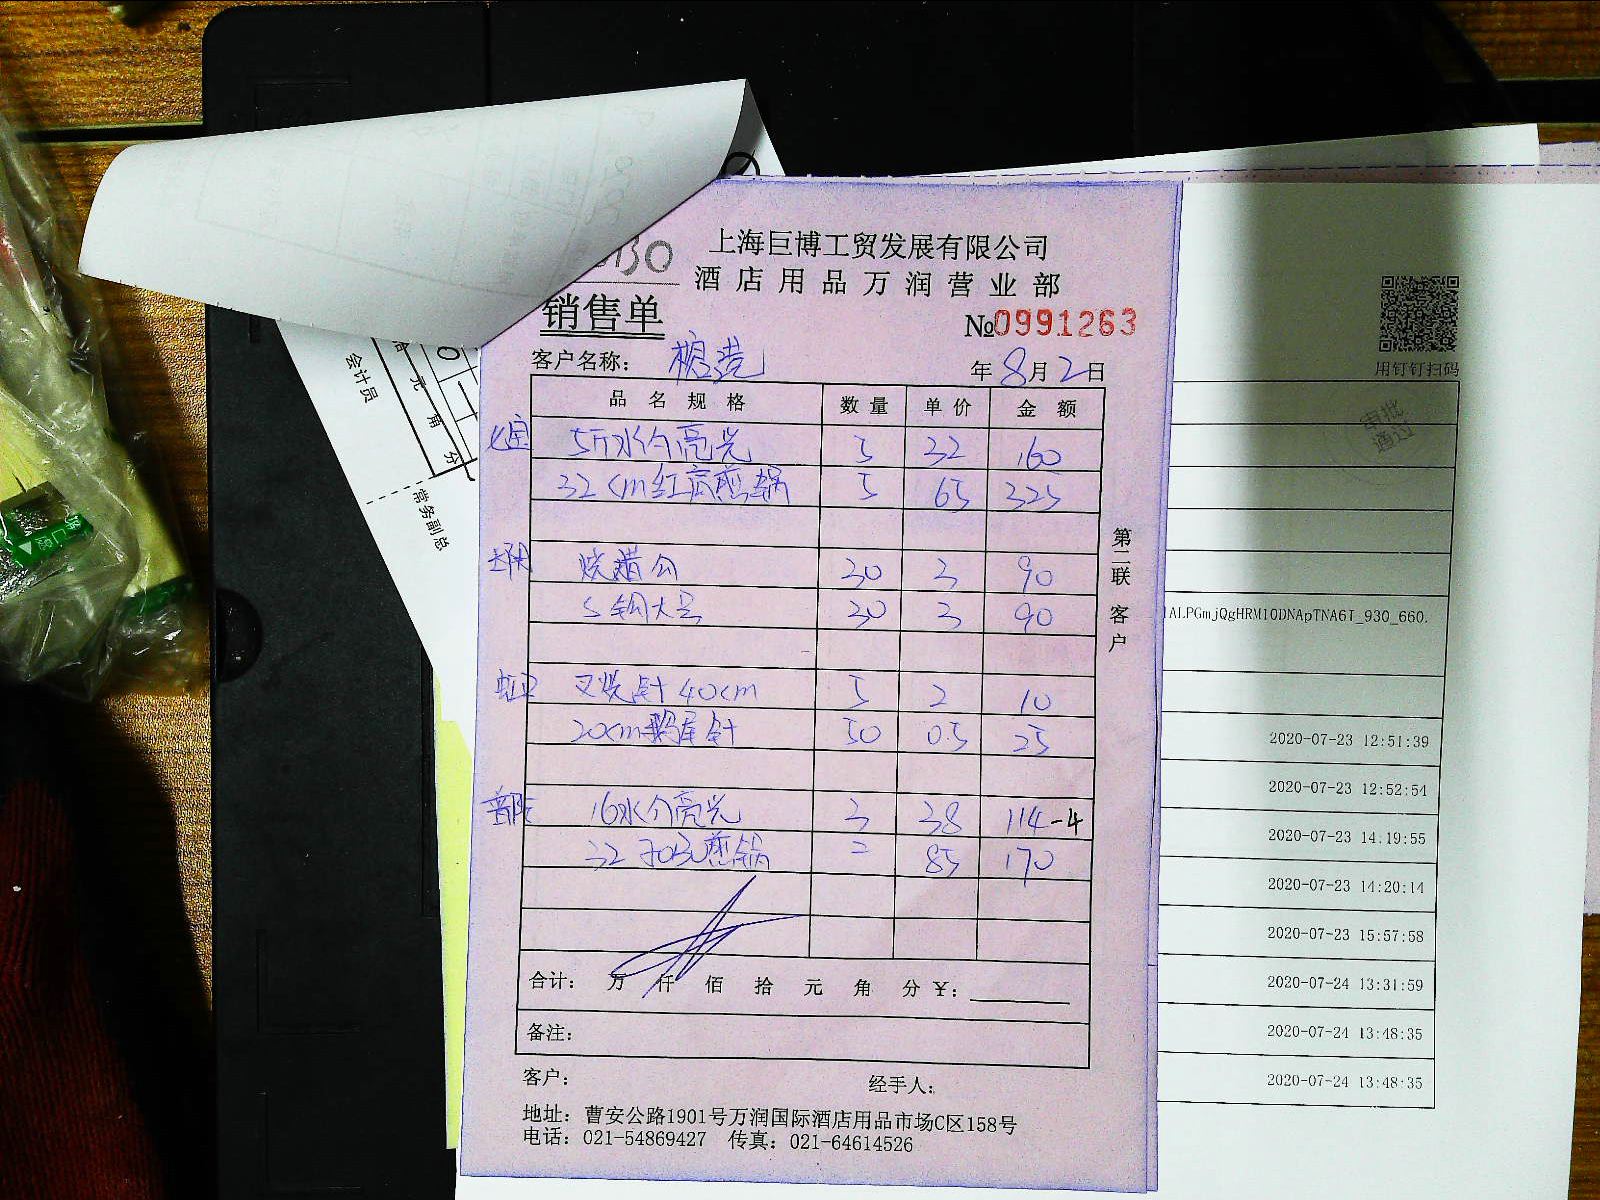 上海巨博工贸发展有限公司
酒店用品万润营业部
销售单
№0991263
客户名称:
年8月2日
品名规格 数量 单价 金额
七宝 5斤水勺亮光 5 32 160
32cm红底煎锅 5 65 325
烧腊勾 30 3 90
S钩大号 30 3 90
叉烧针40cm 5 2 10
20cm鹅尾针 50 0.5 25
普陀 16水勺亮光 3 38 114-4
32 煎锅 2 85 170
合计: 万 仟 佰 拾 元 角 分 ¥:
备注:
客户: 经手人:
地址: 曹安公路1901号万润国际酒店用品市场C区158号
电话: 021-54869427 传真: 021-64614526
第二联 客户
会计员
元 角 分
常务副总
用钉钉扫码
审批
通过
ALPGmjQgHRM10DNApTNA6I_930_660.
2020-07-23 12:51:39
2020-07-23 12:52:54
2020-07-23 14:19:55
2020-07-23 14:20:14
2020-07-23 15:57:58
2020-07-24 13:31:59
2020-07-24 13:48:35
2020-07-24 13:48:35